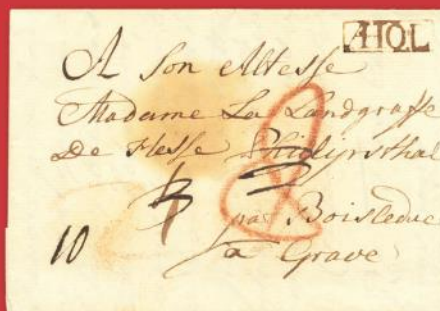 AHOL
A Son Altesse
Madame La Landgraffe
De Hesse Philipsthal
par Boisleduc
10
a Grave